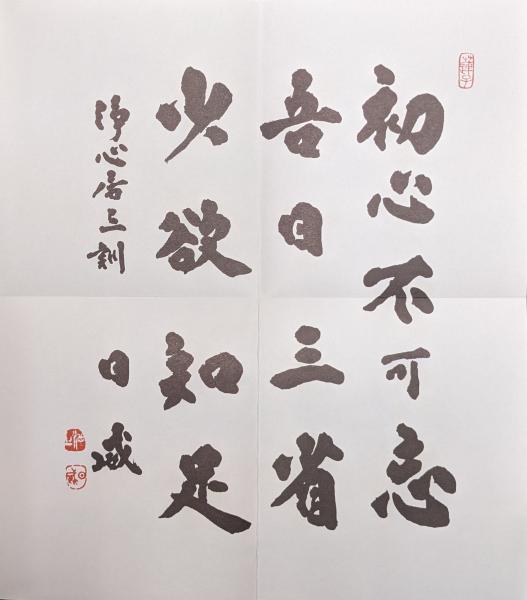 初心不可忘
吾日三省
少欲知足
淨心居三訓
日威